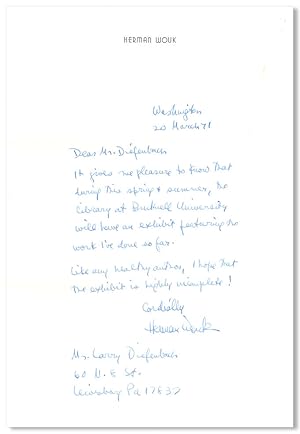 HERMAN WOUK
Washington
20 March 71
Dear Mr. Diefenbach
It gives me pleasure to know that
during this spring & summer, the
library at Bucknell University
will have an exhibit featuring the
work I've done so far.
Like any healthy author, I hope that
the exhibit is highly incomplete!
Cordially
Herman Wouk
Mr. Larry Diefenbach
60 N. 8 St.
Lewisburg Pa 17837